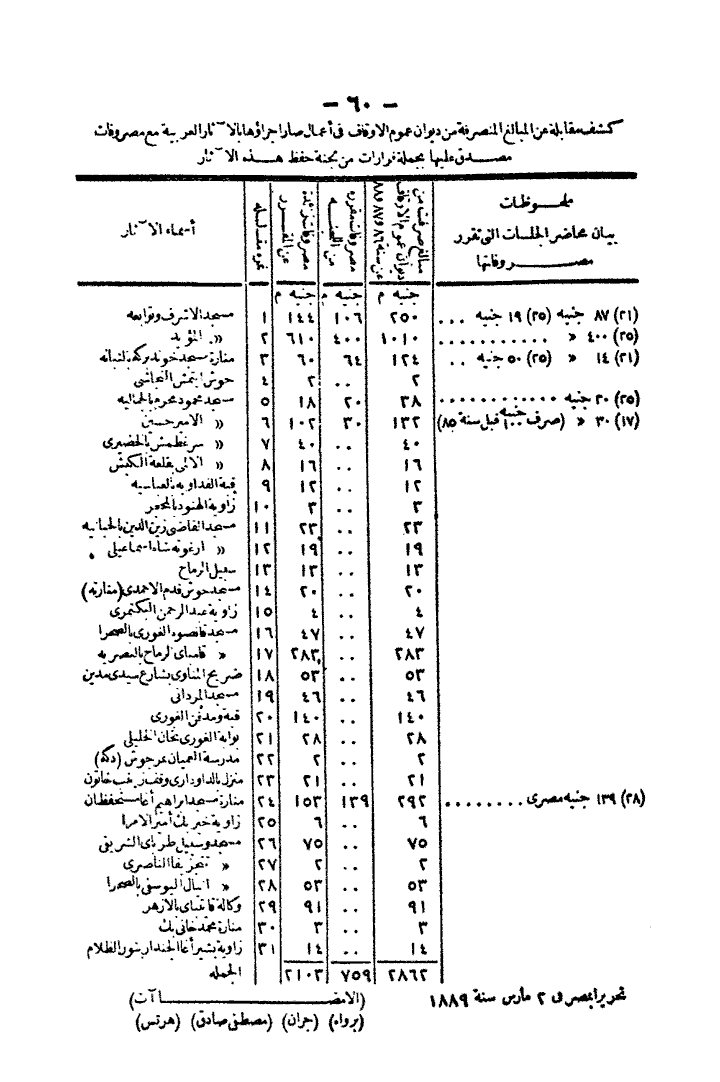 — ٦٠ —
كشف مقابلة عن المبالغ المنصرفة من ديوان عموم الاوقاف فى أعمال صار اجراؤها بالآثار العربية مع مصروفات
مصدق عليها بجملة قرارات من لجنة حفظ هذه الآثار
أسماء الآثار نمره مقابله مصروفات زائدة عن المقرر مصروفات مقرره من اللجنه مبالغ صرفت من ديوان عموم الاوقاف عن سنة ٨٦ و ٨٧ و ٨٨ ملحوظات بيان محاضر الجلسات التى تقرر مصروفاتها
جنيه م جنيه م جنيه م
مسجد الاشرف وتوابعه ١ ١٤٤ ١٠٦ ٢٥٠ (٢١) ٨٧ جنيه (٢٥) ١٩ جنيه ...
« المؤيد ٢ ٦١٠ ٤٠٠ ١٠١٠ (٢٥) ٤٠٠ « ............
منارة مسجد خوند بركه بالتبانه ٣ ٦٠ ٦٤ ١٢٤ (٢١) ١٤ « (٢٥) ٥٠ جنيه ..
حوش ايتمش النجاشى ٤ ٢ .. ٢
مسجد محمود محرم بالجماليه ٥ ١٨ ٢٠ ٣٨ (٢٥) ٢٠ جنيه ............
« الامير حسين ٦ ١٠٢ ٣٠ ١٣٢ (١٧) ٣٠ « (صرف ١٠٠ جنيه قبل سنة ٨٥)
« سرغطمش بالخضيرى ٧ ٤٠ .. ٤٠
« الالى بقلعة الكبش ٨ ١٦ .. ١٦
قبة الفداويه بالعباسيه ٩ ١٢ .. ١٢
زاوية الهنود بالمحجر ١٠ ٣ .. ٣
مسجد القاضى زين الدين بالحبانيه ١١ ٢٣ .. ٢٣
« ارغونه شاه اسماعيلى ١٢ ١٩ .. ١٩
سبيل الرماح ١٣ ١٣ .. ١٣
مسجد حوش قدم الاحمدى (منارته) ١٤ ٢٠ .. ٢٠
زاوية عبد الرحمن البكتمرى ١٥ ٤ .. ٤
مسجد قانصوه الغورى بالصحرا ١٦ ٤٧ .. ٤٧
« قانباى الرماح بالنصريه ١٧ ٢٨٣ .. ٢٨٣
ضريح المناوى بشارع سيدى مدين ١٨ ٥٣ .. ٥٣
مسجد المردانى ١٩ ٤٦ .. ٤٦
قبة ومدفن الغورى ٢٠ ١٤٠ .. ١٤٠
بوابة الغورى بخان الخليلى ٢١ ٢٨ .. ٢٨
مدرسة العميان بمرجوش (دكة) ٢٢ ٢ .. ٢
منزل بالداودارى وقف زينب خاتون ٢٣ ٢١ .. ٢١
منارة مسجد ابراهيم أغا مستحفظان ٢٤ ١٥٣ ١٣٩ ٢٩٢ (٢٨) ١٣٩ جنيه مصرى ........
زاوية خير بك أمير الامرا ٢٥ ٦ .. ٦
مسجد وسبيل طرباى الشريفى ٢٦ ٧٥ .. ٧٥
« تنجزبغا الناصرى ٢٧ ٢ .. ٢
« اينال اليوسفى بالصحرا ٢٨ ٥٣ .. ٥٣
وكالة قايتباى بالازهر ٢٩ ٩١ .. ٩١
منارة محمد خانى بك ٣٠ ٣ .. ٣
زاوية بشير أغا الجندار بنور الظلام ٣١ ١٤ .. ١٤
الجمله ٢١٠٣ ٧٥٩ ٢٨٦٢
تحريرا بمصر فى ٢ مارس سنة ١٨٨٩ (الامضاآت)
(برواه) (جران) (مصطفى صادق) (هرتس)